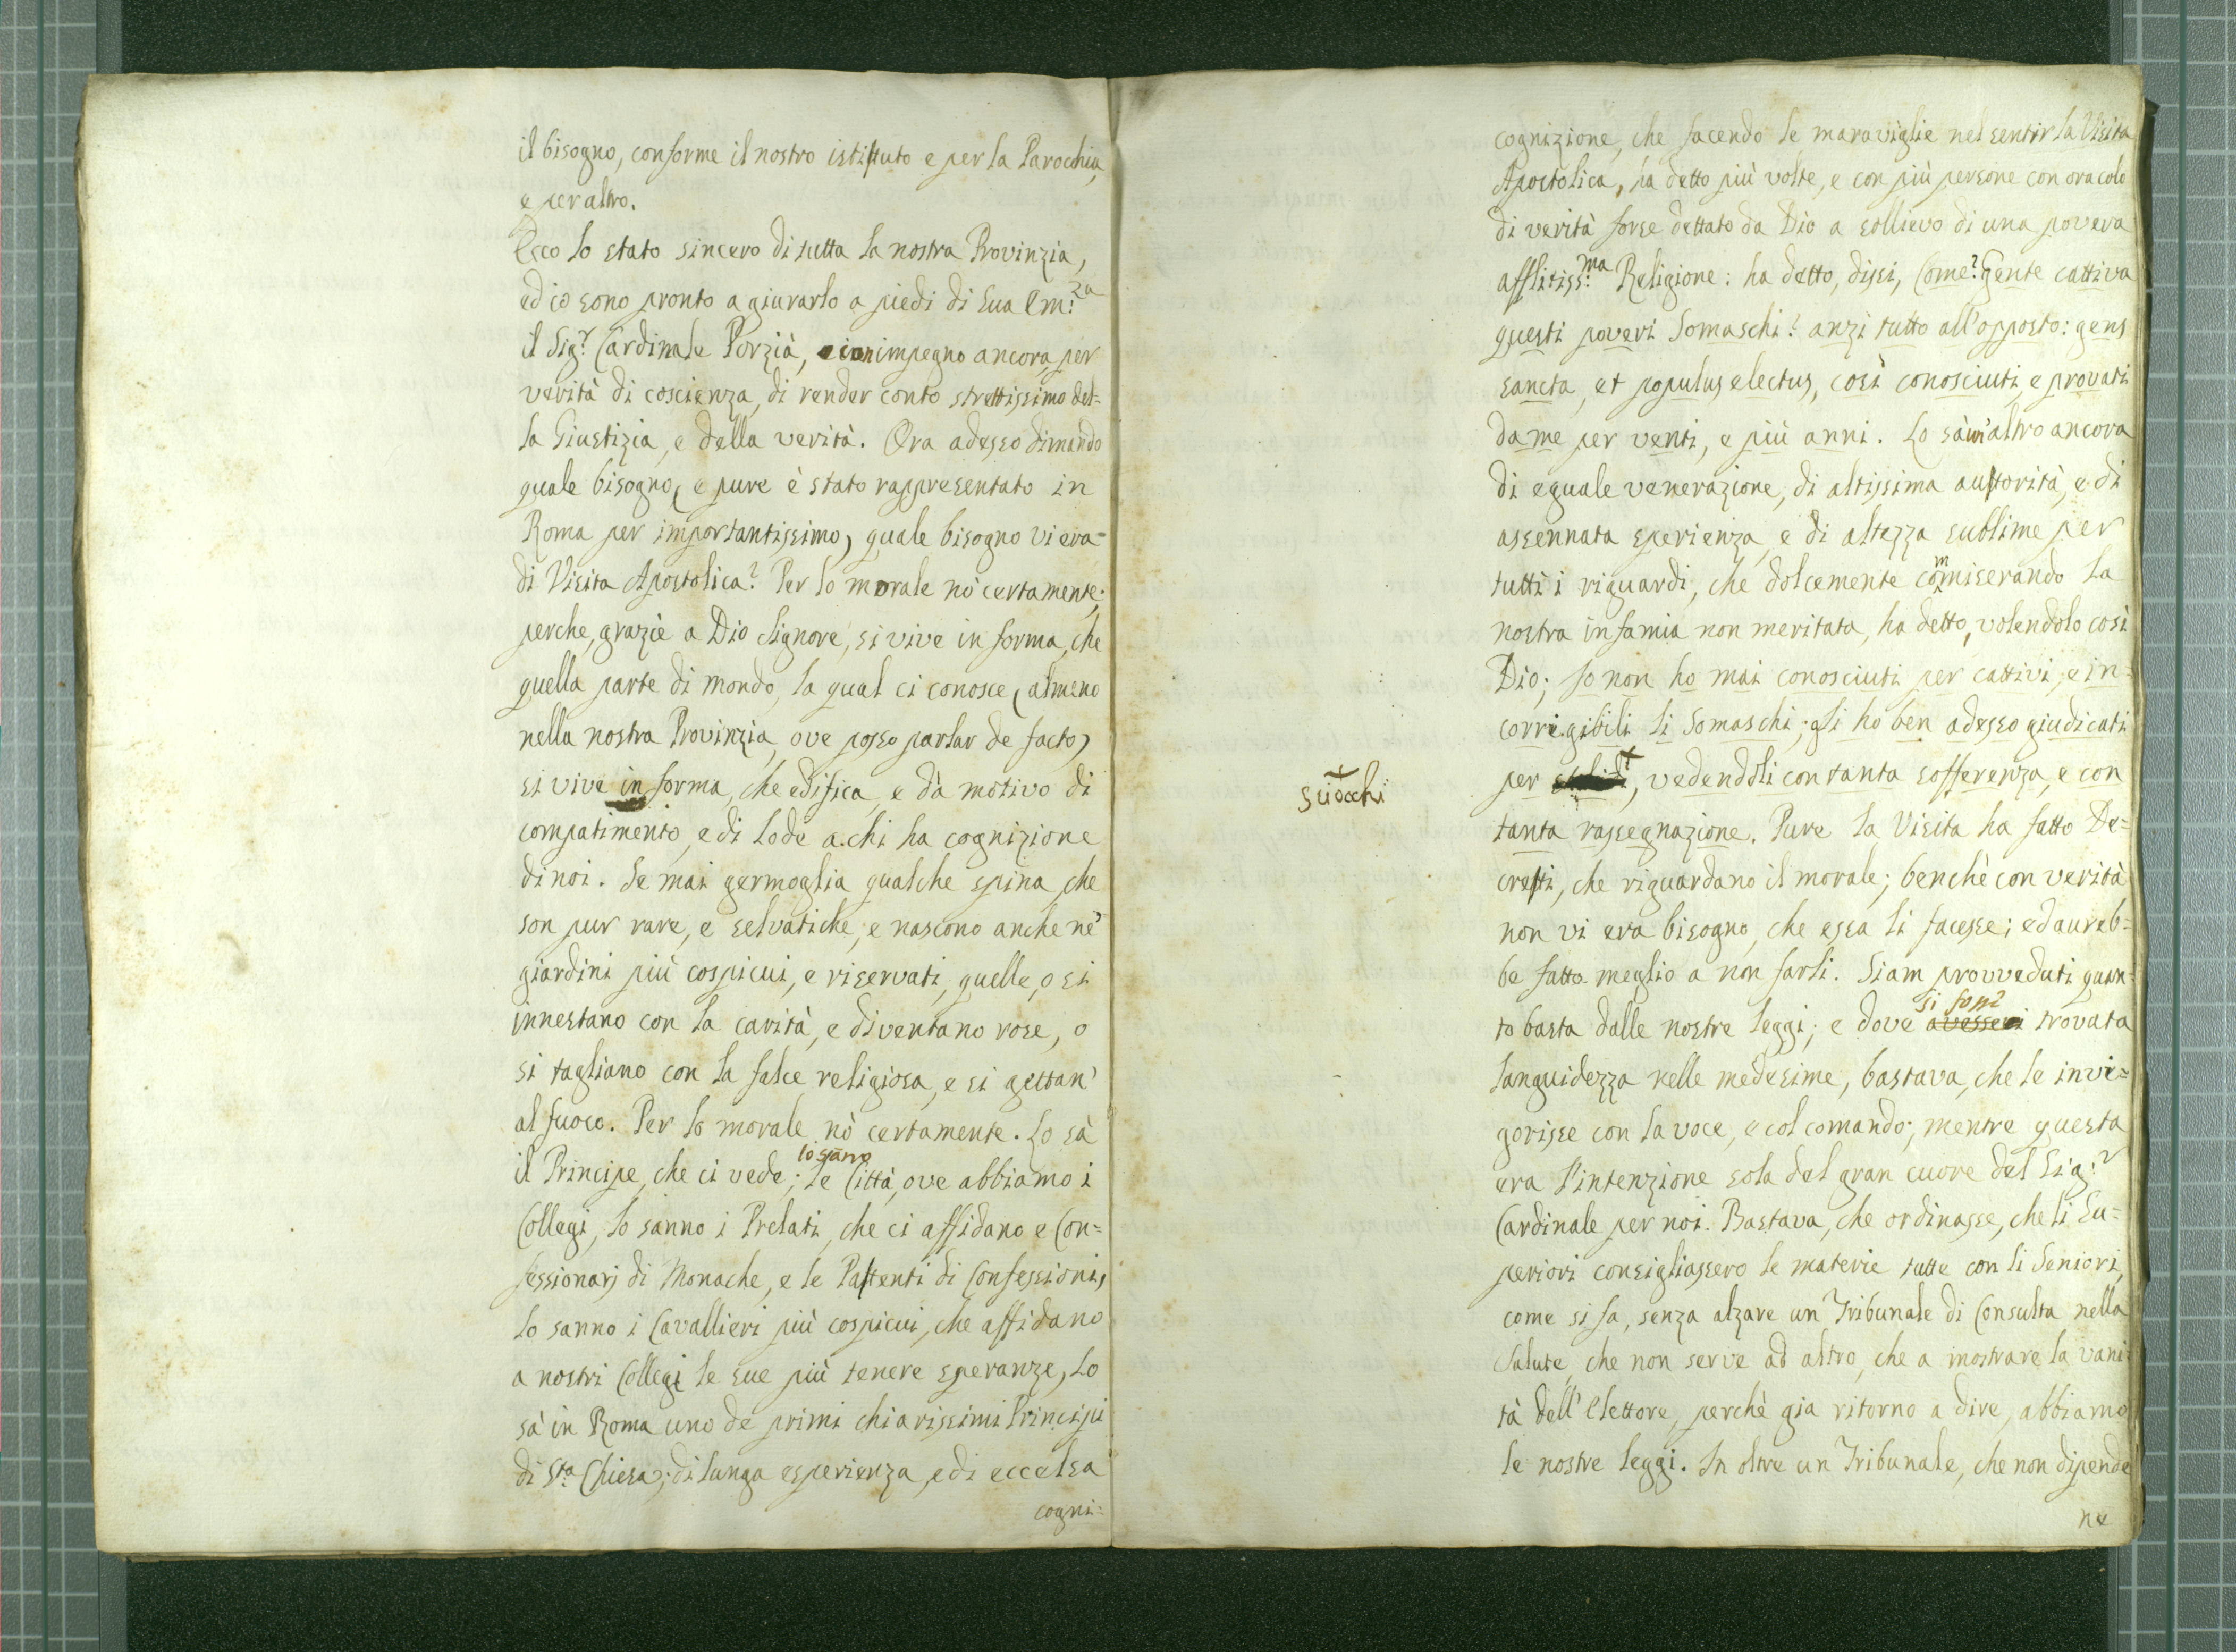 il bisogno, conforme il nostro istituto e per la Parochia,
e per altro.
Ecco lo stato sincero di tutta la nostra Provinzia,
ed io sono pronto a giurarlo a piedi di Sua Em:za
il Sig:r Cardinale Porzià, e con impegno ancora, per
verità di coscienza, di render conto strettissimo del=
la Giustizia, e della verità. Ora adesso dimando
quale bisogno, (e pure è stato rappresentato in
Roma per importantissimo) quale bisogno vi era=
di Visita Apostolica? Per lo morale nò certamente;
perche, grazie a Dio Signore, si vive in forma, che
quella parte di mondo, la qual ci conosce (almeno
nella nostra Provinzia, ove posso parlar de facto)
si vive in forma, che edifica, e dà motivo di
compatimento, e di lode a chi ha cognizione
di noi. Se mai germoglia qualche spina, che
son pur rare, e selvatiche, e nascono anche ne'
giardini più cospicui, e riservati, quelle, o si
innestano con la carità, e diventano rose, o
si tagliano con la falce religiosa, e si gettan'
al fuoco. Per lo morale nò certamente. Lo sà
il Principe, che ci vede; lo sanno le Città, ove abbiamo i
Collegi, lo sanno i Prelati, che ci affidano e Con=
fessionarj di Monache, e le Pattenti di Confessioni,
lo sanno i Cavallieri più cospicui, che affidano
a nostri Collegi le sue più tenere speranze, Lo
sà in Roma uno de primi chiarissimi Principi
di S:ta Chiesa; di lunga esperienza, e di eccelsa
cogni=
cognizione, che facendo le maraviglie nel sentir la Visita
Apostolica, ha detto più volte, e con più persone con oracolo
di verità forse dettato da Dio a sollievo di una povera
afflitiss:ma Religione: ha detto, dissi, Come? Gente cattiva
questi poveri Somaschi? anzi tutto all'opposto: gens
sancta, et populus electus, così conosciuti, e provati
da me per venti, e più anni. Lo sà un'altro ancora
di eguale venerazione, di altissima auttorità, e di
assennata sperienza, e di altezza sublime per
tutti i riguardi, che dolcemente commiserando la
nostra infamia non meritata, ha detto, volendolo così
Dio; Io non ho mai conosciuti per cattivi, e in=
corrigibili li Somaschi; gli ho ben adesso giudicati
per +, vedendoli con tanta sofferenza, e con
+
sciocchi
tanta rassegnazione. Pure la Visita ha fatto De=
cretti, che riguardano il morale; benchè con verità
non vi era bisogno, che essa li facesse; ed aureb=
be fatto meglio a non farli. Siam provveduti quan=
to basta dalle nostre leggi; e dove avesse trovata
languidezza nelle medesime, bastava, che le invi=
gorisse con la voce, e col comando; mentre questa
era l'intenzione sola del gran cuore del Sig:r
Cardinale per noi. Bastava, che ordinasse, che li Su=
periori consigliassero le materie tutte con li Seniori,
come si fa, senza alzare un Tribunale di Consulta nella
Salute, che non serve ad altro, che a mostrare la vani=
tà dell'Elettore, perchè gia ritorno a dire, abbiamo
le nostre leggi. In oltre un Tribunale, che non dipende
ne